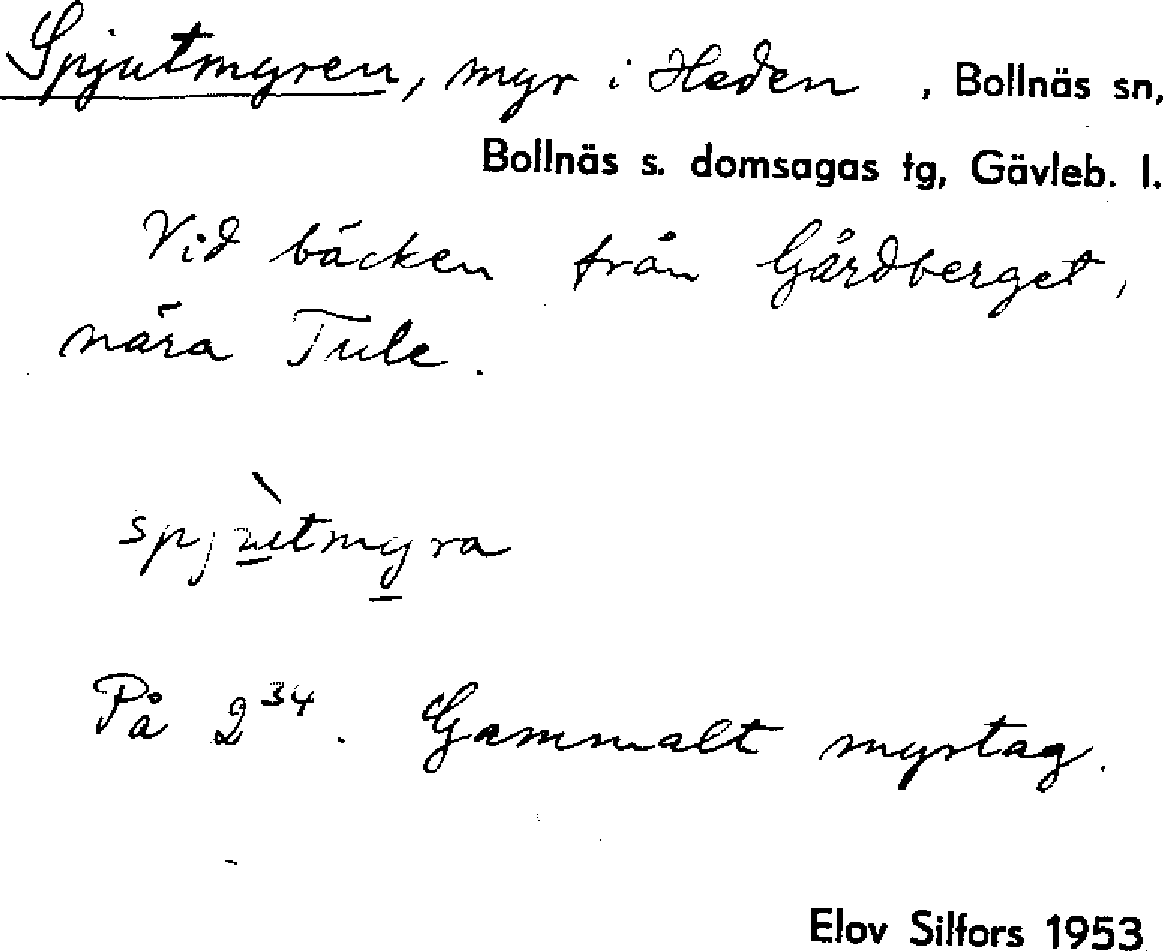 Spjutmyren, myr i Heden , Bollnäs sn,
Bollnäs s. domsagas tg, Gävleb. l.
Vid bäcken från Gårdberget,
nära Tule.
spjùtmyra
På 2³⁴. Gammalt myrtag.
Elov Silfors 1953